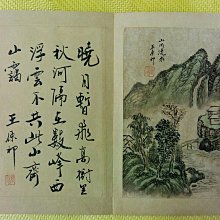 曉月暫飛高樹里
秋河隔在數峰西
浮雲不共此山齊
山靄
王原祁
王原祁